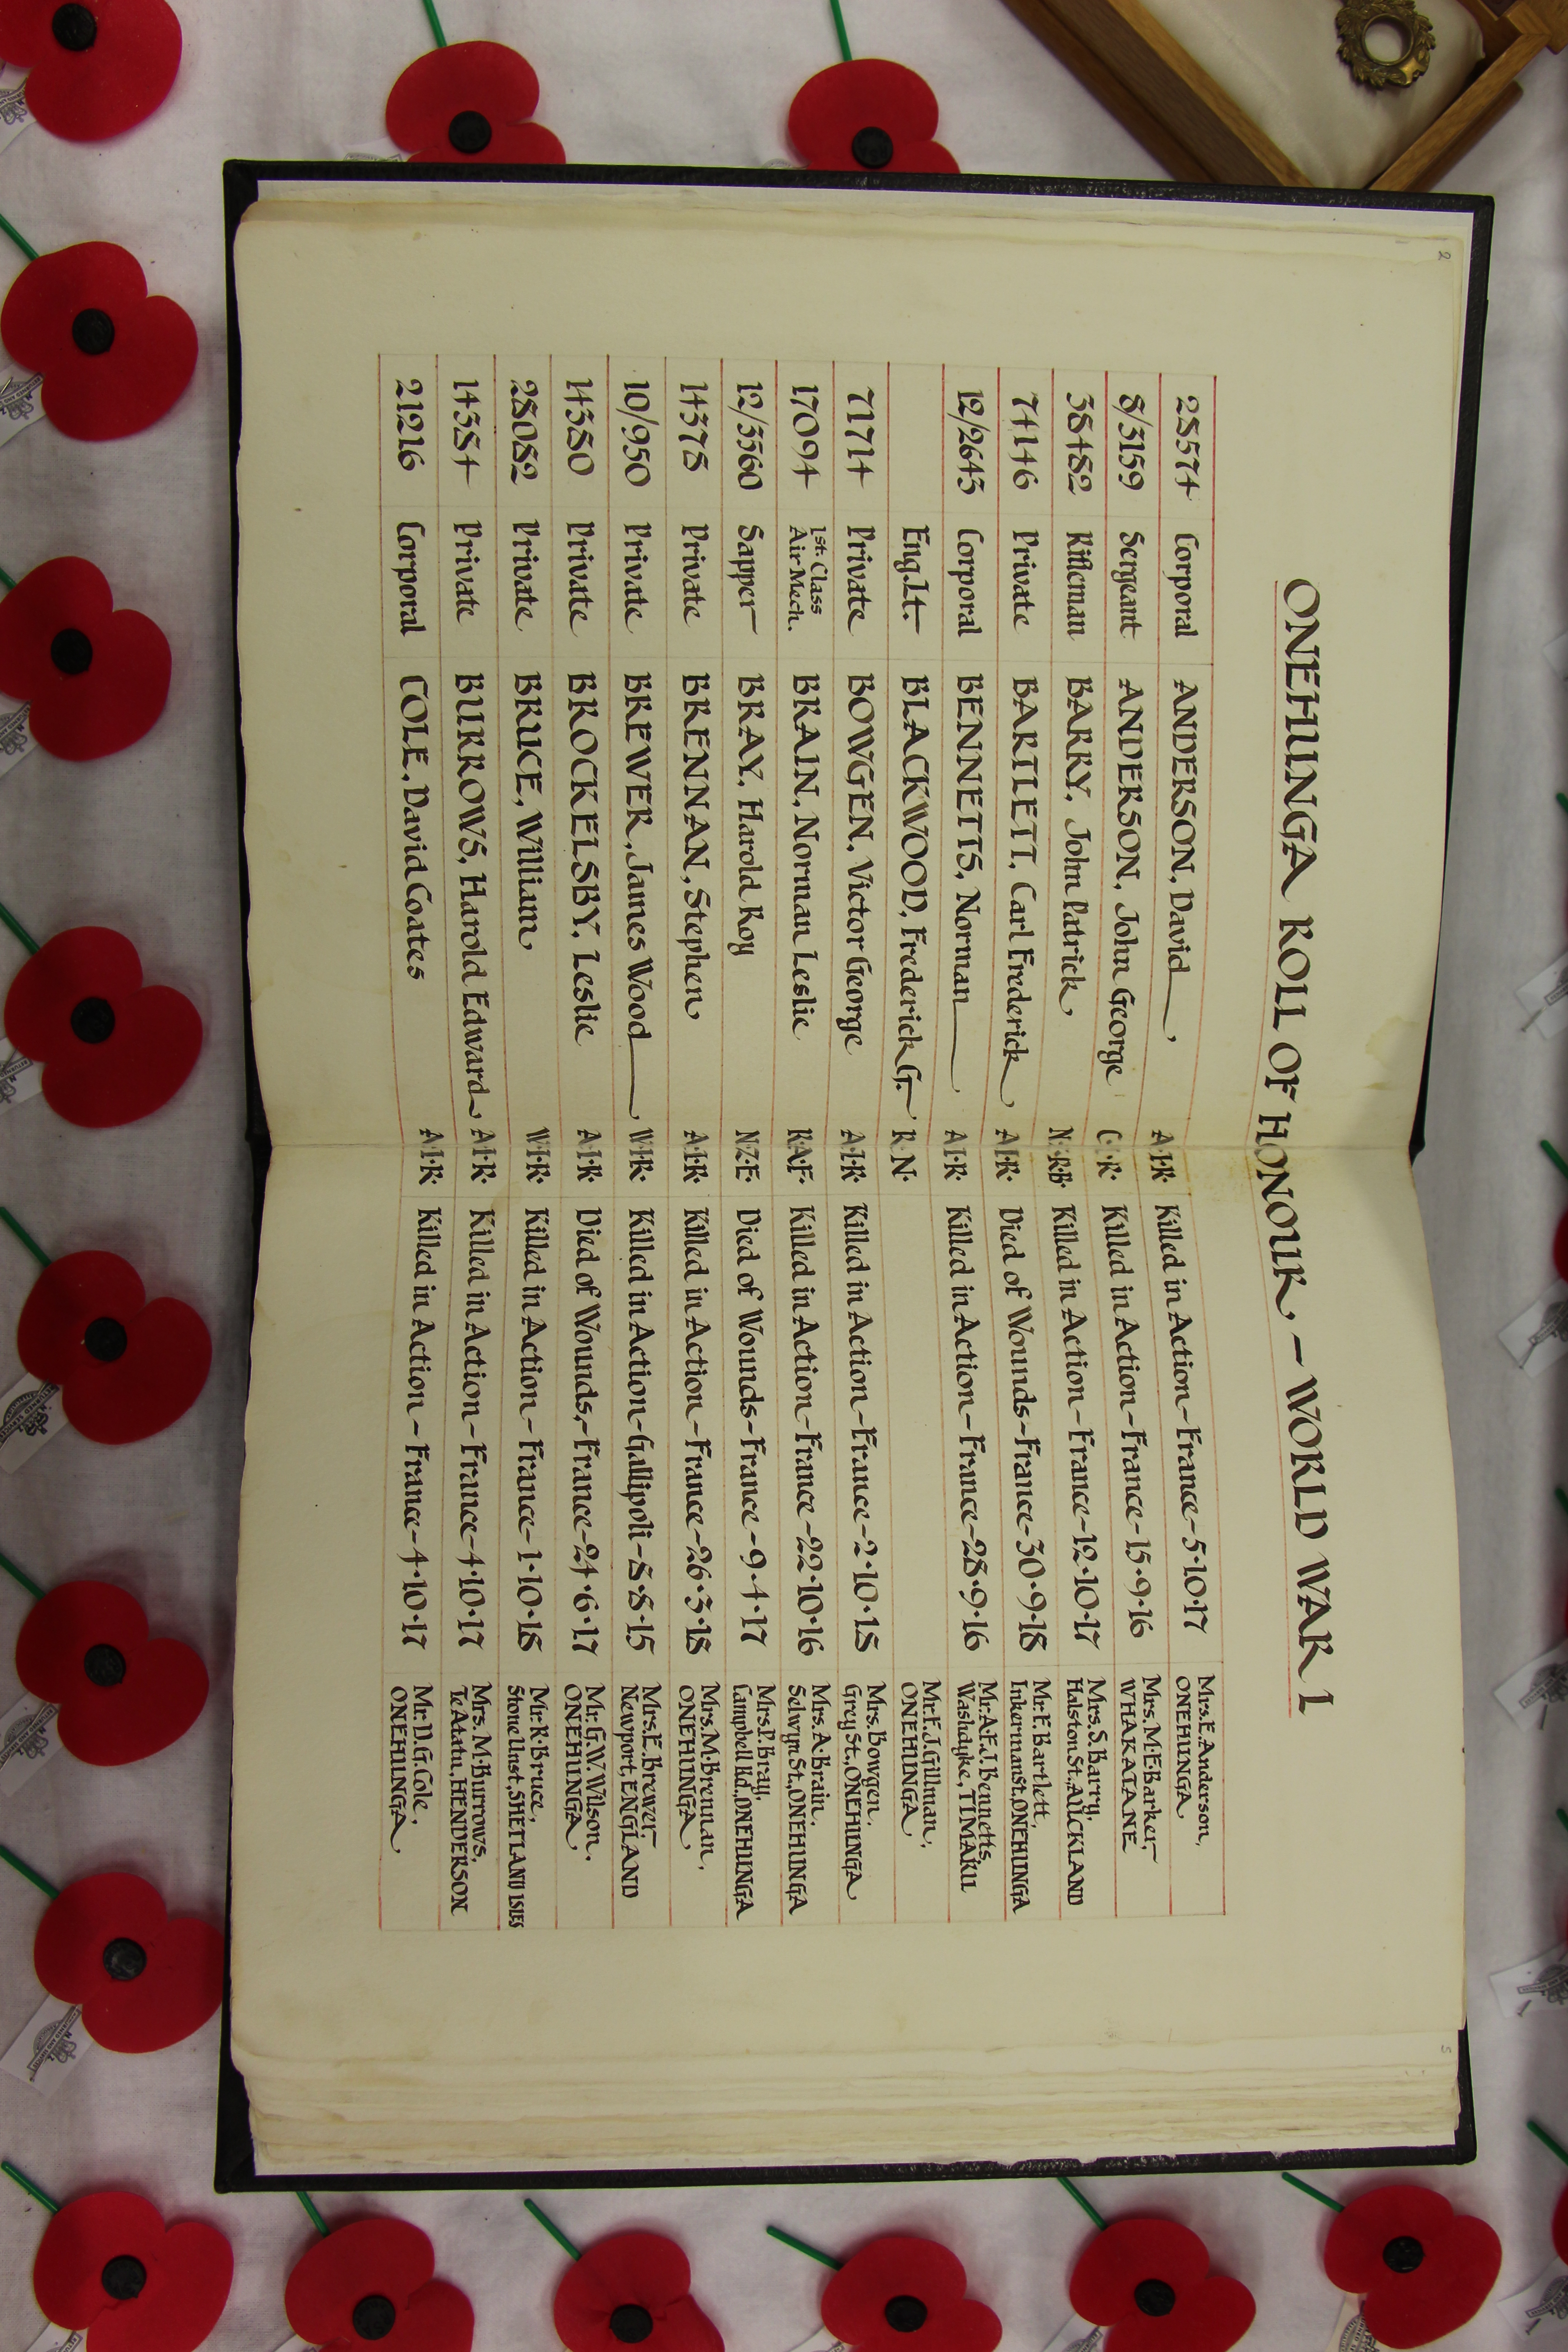 ONEHUNGA ROLL OF HONOUR – WORLD WAR 1
28574 Corporal ANDERSON, David A·I·R· Killed in Action – France – 5·10·17 Mrs. E. Anderson, ONEHUNGA
8/3159 Sergeant ANDERSON, John George C· ·R· Killed in Action – France – 15·9·16 Mrs. M·E·Barker, WHAKATANE
38482 Rifleman BARRY, John Patrick N· ·R·B· Killed in Action – France – 12·10·17 Mrs. S. Barry, Halston St., AUCKLAND
74146 Private BARTLETT, Carl Frederick A·I·R· Died of Wounds – France – 30·9·18 Mr. F. Bartlett, Inkerman St, ONEHUNGA
12/2643 Corporal BENNETTS, Norman A·I·R· Killed in Action – France – 28·9·16 Mr. A·F·J. Bennetts, Washdyke, TIMARU
Eng. Lt. BLACKWOOD, Frederick G. R·N· Mr. F. J. Gillman, ONEHUNGA
71714 Private BOWGEN, Victor George A·I·R· Killed in Action – France – 2·10·18 Mrs. Bowgen, Grey St., ONEHUNGA
17094 1st. Class Air Mech. BRAIN, Norman Leslie R·A·F· Killed in Action – France – 22·10·16 Mrs. A. Brain, Selwyn St., ONEHUNGA
12/3560 Sapper BRAY, Harold Roy N·Z·E· Died of Wounds – France – 9·4·17 Mrs. P. Bray, Campbell Rd., ONEHUNGA
14378 Private BRENNAN, Stephen A·I·R· Killed in Action – France – 26·3·18 Mrs. M. Brennan, ONEHUNGA
10/950 Private BREWER, James Wood W·I·R· Killed in Action – Gallipoli – 8·8·15 Mrs. E. Brewer, Newport, ENGLAND
14380 Private BROCKELSBY, Leslie A·I·R· Died of Wounds, – France – 24·6·17 Mr. G. W. Wilson, ONEHUNGA
28082 Private BRUCE, William W·I·R· Killed in Action – France – 1·10·18 Mr. R. Bruce, Stone Unst, SHETLAND ISLES
14384 Private BURROWS, Harold Edward A·I·R· Killed in Action – France – 4·10·17 Mrs. M. Burrows, Te Atatu, HENDERSON
21216 Corporal COLE, David Coates A·I·R· Killed in Action – France – 4·10·17 Mr. D. G. Cole, ONEHUNGA
2
5